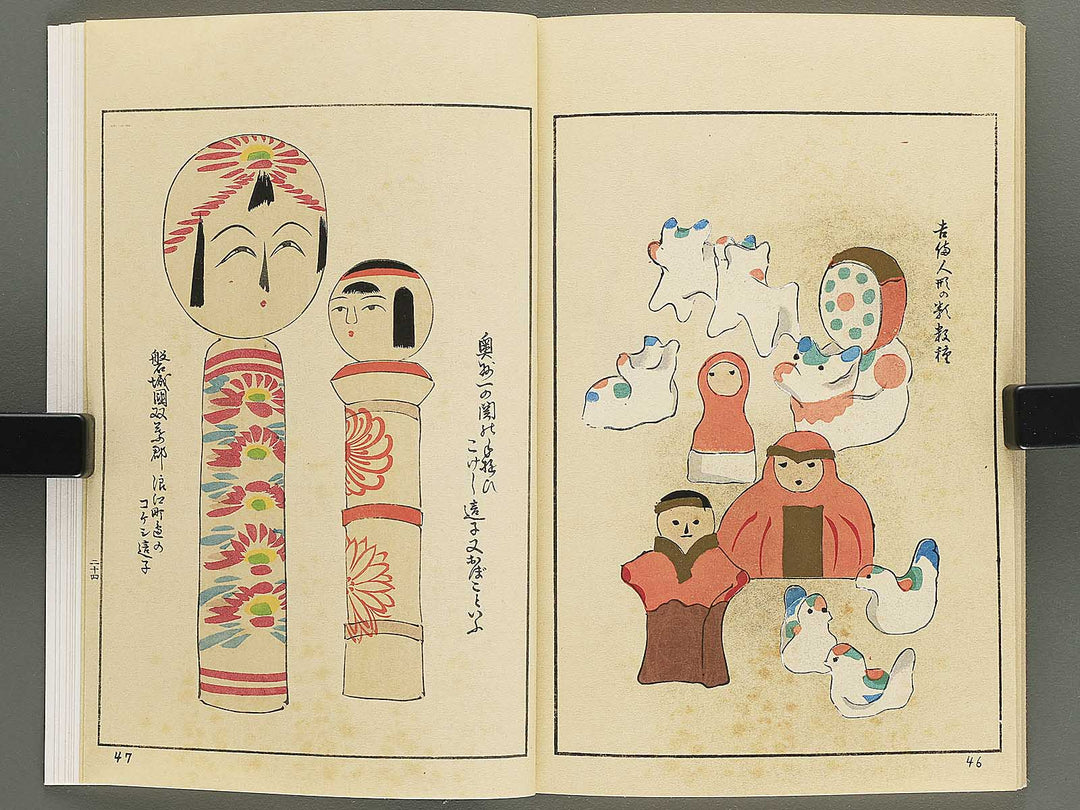 吉備人形の類数種
46
奥州一の関の手遊ひ
こけし這子又おぼことといふ
磐城國双葉郡浪江町辺の
コケシ這子
二十四
47